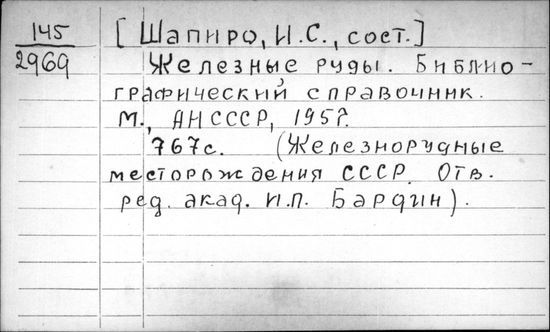 145 [Шапиро, И.С., сост.]
2969 Железные руды. Библио-
графический справочник.
М., АН СССР, 1957.
767с. (Железнорудные
месторождения СССР. Отв.
ред. акад. И.П. Бардин).